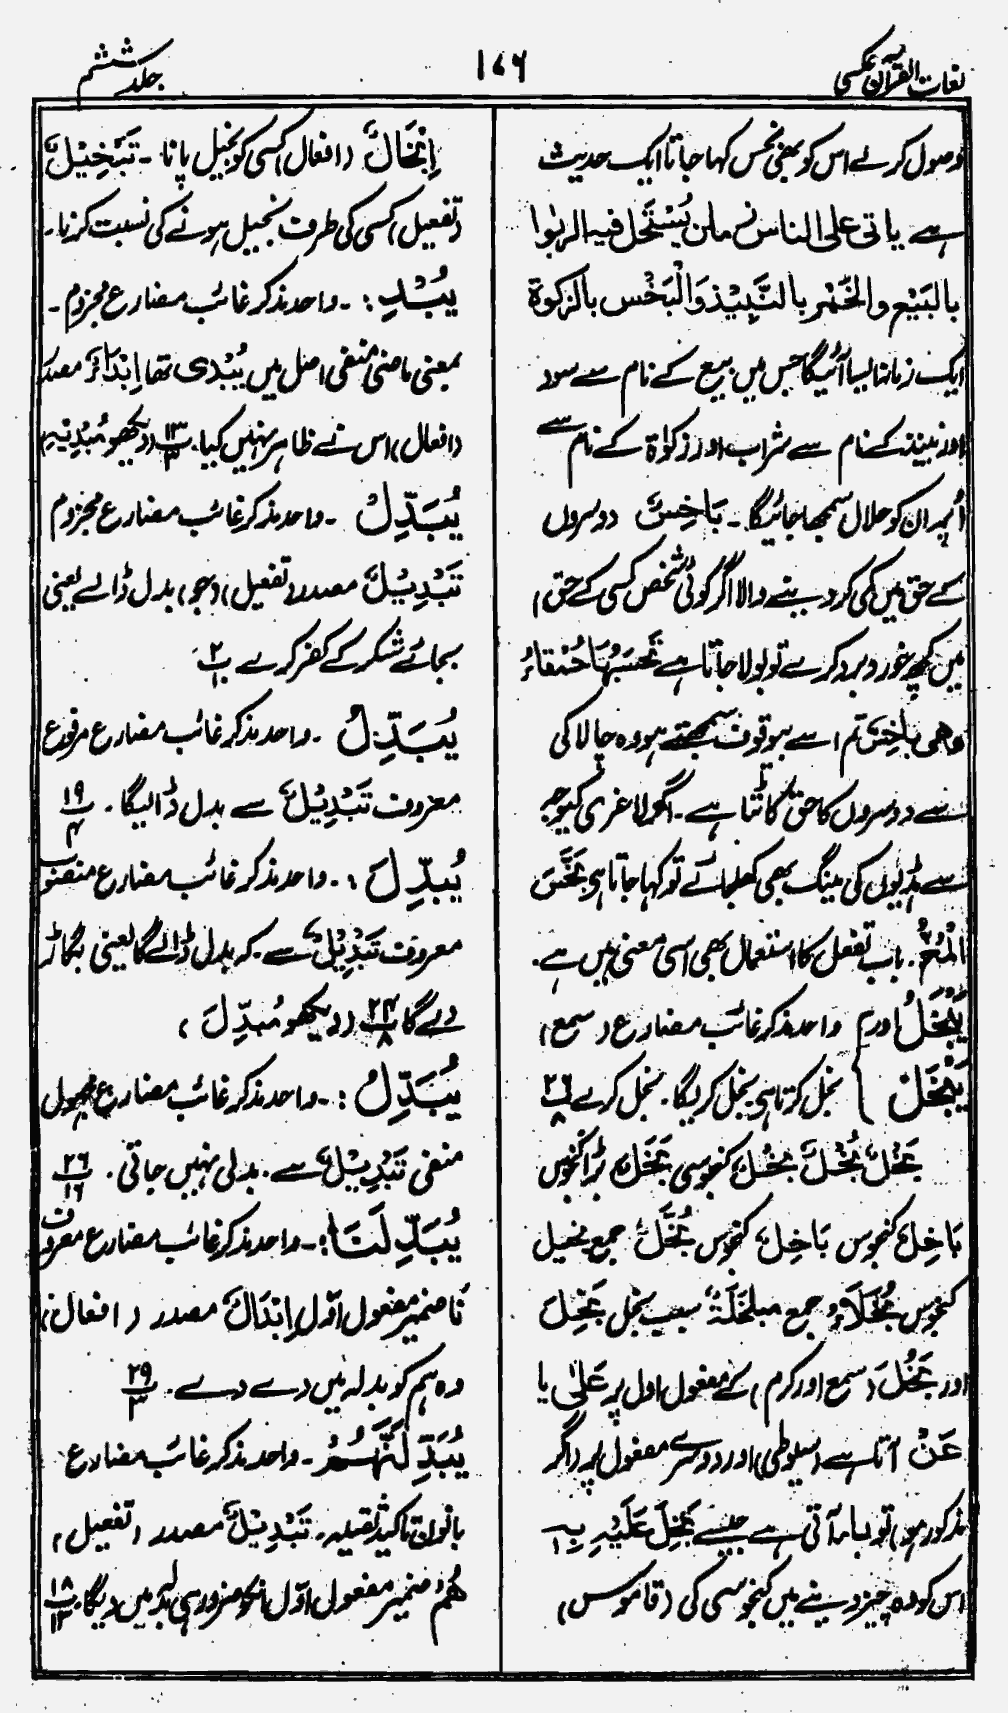 لغات القرآن عکسی
۱۷۶
جلد ششم
وصول کرے اس کو بھی بخس کہا جاتا ایک حدیث
ہے یاتی علی الناس زمان یُسْتَحل فیہ الربٰوا
بالبَیْعِ والخَمْر بالنَّبِیْذ وَالْبَخْس بالزکوٰۃ
ایک زمانہ ایسا آئیگا جس میں بیع کے نام سے سود
اور نبیذ کے نام سے شراب اور زکوٰۃ کے نام سے
اُمور ان کو حلال سمجھا جائیگا۔ بَاخِسٌ دوسروں
کے حق میں کمی کر دینے والا اگر کوئی شخص کسی کے حق
میں کچھ خورد برد کرے تو بولا جاتا ہے تَحْسَبُهَا حَمْقَاءُ
وھی باخِسٌ تم اسے بیوقوف سمجھتے ہو وہ چالاکی
سے دوسروں کا حق کاٹتا ہے۔ اگر لاغری کیوجہ
سے ہڈیوں کی مینگ بھی گھل جائے تو کہا جاتا ہے بَخَّسَ
الْمُخُّ۔ باب تفعل کا استعمال بھی اسی معنی میں ہے۔
یَبْخَلُ اور م واحد مذکر غائب مضارع (سمع)
یَبْخَلْ } بخل کرتا ہے بخل کریگا۔ بخل کرے ۲۶/۸
بَخْلٌ بُخْلٌ بُخُلٌ کنجوسی بَخَلٌ بڑا کنجوس
بَاخِلٌ کنجوس بَاخِلٌ کنجوس بُخَّلٌ جمع بخیل
کنجوس بُخَلَاءُ جمع مبلخَلَۃٌ سبب بخل بَخِلَ
اور بَخُلَ (سمع اور کرم) کے مفعول اول پر عَلٰی یا
عَنْ آتا ہے (سیوطی) اور دوسرے مفعول پر (اگر
مذکور ہو) تو با آتی ہے جیسے بَخِلَ عَلَیْہِ بِہٖ
اس کو وہ چیز دینے میں کنجوسی کی (قاموس)
اِبْخَالٌ (افعال) کسی کو بخیل پانا۔ تَبْخِیْلٌ
(تفعیل) کسی کی طرف بخیل ہونے کی نسبت کرنا۔
یُبْدِ:۔ واحد مذکر غائب مضارع مجزوم۔
بمعنی ماضی منفی اصل میں یُبْدِی تھا اِبْدَاءٌ مصدر
(افعال) اس نے ظاہر نہیں کیا۔ ۱۳/۳ (دیکھو مُبْدِیْہِ)
یُبَدِّلْ ۔ واحد مذکر غائب مضارع مجزوم
تَبْدِیْلٌ مصدر (تفعیل) (جو) بدل ڈالے یعنی
بجائے شکر کے کفر کرے ۲/۱۰
یُبَدِّلُ ۔ واحد مذکر غائب مضارع مرفوع
معروف تَبْدِیْلٌ سے بدل ڈالیگا۔ ۱۹/۴
یُبَدِّلَ :۔ واحد مذکر غائب مضارع منصوب
معروف تَبْدِیْلٌ سے۔ کہ بدل ڈالے گا یعنی بگاڑ
دے گا ۲۴/۸ (دیکھو مُبدِّلَ)
یُبَدَّلُ :۔ واحد مذکر غائب مضارع مجہول
منفی تَبْدِیْلٌ سے۔ بدلی نہیں جاتی۔ ۲۶/۱۶
یُبَدِّلَنَا :۔ واحد مذکر غائب مضارع معروف
نَا ضمیر مفعول اوّل اِبْدَالٌ مصدر (افعال)
وہ ہم کو بدلہ میں دے دے۔ ۲۹/۳
یُبَدِّلَنَّهُمْ ۔ واحد مذکر غائب مضارع
بانون تاکید ثقیلہ۔ تَبْدِیْلٌ مصدر (تفعیل)
هُمْ ضمیر مفعول اوّل انکو ضرور ہی بدلہ میں دیگا۔ ۱۸/۱۳